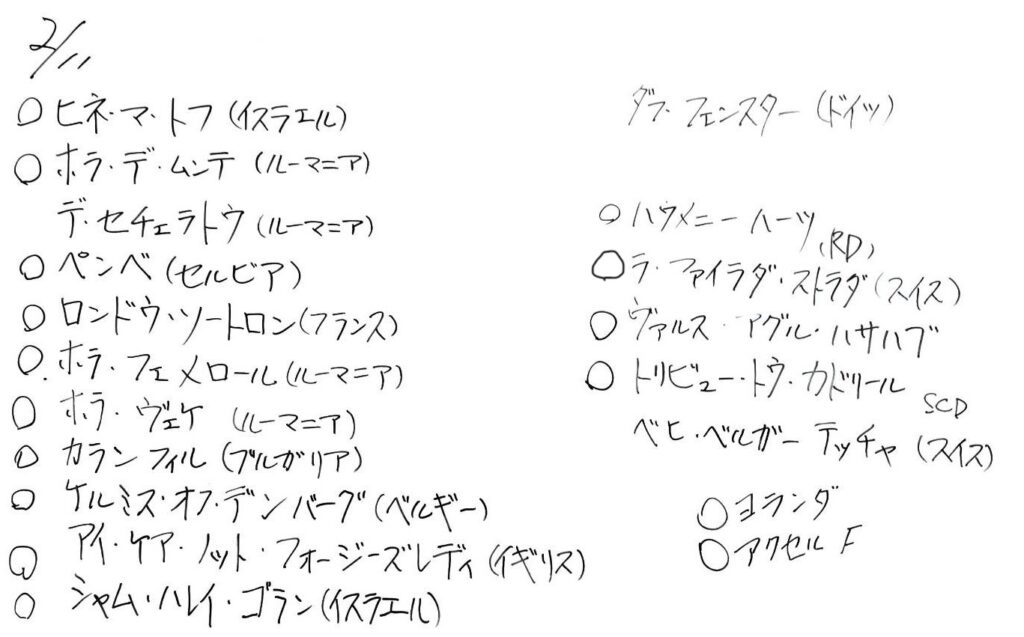 2/11
○ ヒネ・マ・トフ (イスラエル)
○ ホラ・デ・ムンテ (ルーマニア)
デ・セチェラトウ (ルーマニア)
○ ペンベ (セルビア)
○ ロンドウ・ソートロン (フランス)
○ ホラ・フェメロール (ルーマニア)
○ ホラ・ヴェケ (ルーマニア)
○ カランフィル (ブルガリア)
○ ケルミス・オフ・デンバーグ (ベルギー)
○ アイ・ケア・ノット・フォージーズレディ (イギリス)
○ シャム・ハレイ・ゴラン (イスラエル)
ダス・フェンスター (ドイツ)
○ ハウメニーハーツ (RD)
○ ラ・ファイラダ・ストラダ (スイス)
○ ヴァルス・アグル・ハサハブ
○ トリビュー・トウ・カドリール
SCD
ベヒ・ベルガーテッチャ (スイス)
○ ヨランダ
○ アクセル F